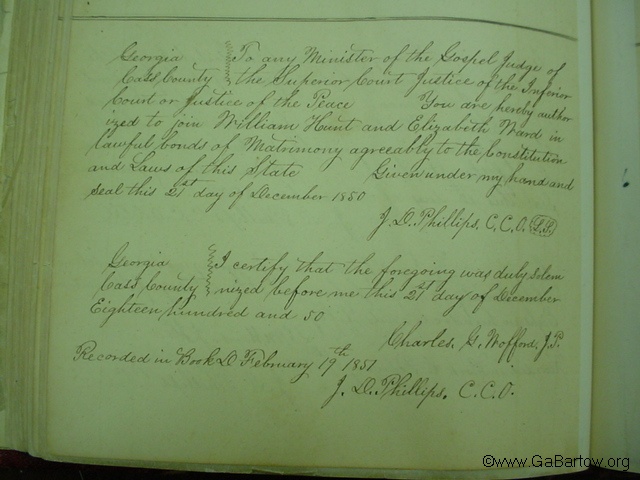 Georgia To any Minister of the Gospel Judge of
Cass County the Superior Court Justice of the Inferior
Court or Justice of the Peace You are hereby author
ized to join William Hunt and Elizabeth Ward in
lawful bonds of Matrimony agreeably to the Constitution
and Laws of this State Given under my hand and
seal this 21st day of December 1850
J. D. Phillips, C.C.O. L.S.
Georgia I certify that the foregoing was duly solem
Cass County nized before me this 21st day of December
Eighteen hundred and 50
Charles, G, Wofford, J.P.
Recorded in Book D February 19th 1851
J. D. Phillips. C.C.O.
©www.GaBartow.org